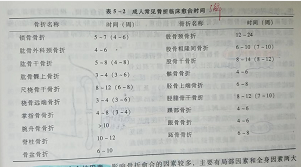 表 5-2 成人常见骨折临床愈合时间
骨折名称 时间（周） 骨折名称 时间（周）
锁骨骨折 5~7（4~6） 股骨颈骨折 12~24
肱骨外科颈骨折 4~6 股骨粗隆间骨折 6~10（7~10）
肱骨干骨折 5~8（4~8） 股骨干骨折 8~14（8~12）
肱骨髁上骨折 3~4（3~6） 髌骨骨折 4~6
尺桡骨干骨折 8~12（6~8） 胫骨上端骨折 6~8
桡骨远端骨折 3~4（3~6） 胫腓骨干骨折 8~12（7~10）
掌指骨骨折 3~4（3~6） 踝部骨折 4~6
腕舟骨骨折 >10 跟骨骨折 4~6
脊柱骨折 10~12 距骨骨折 6~8
骨盆骨折 6~10
影响骨折愈合的因素较多，主要有局部因素和全身因素两大